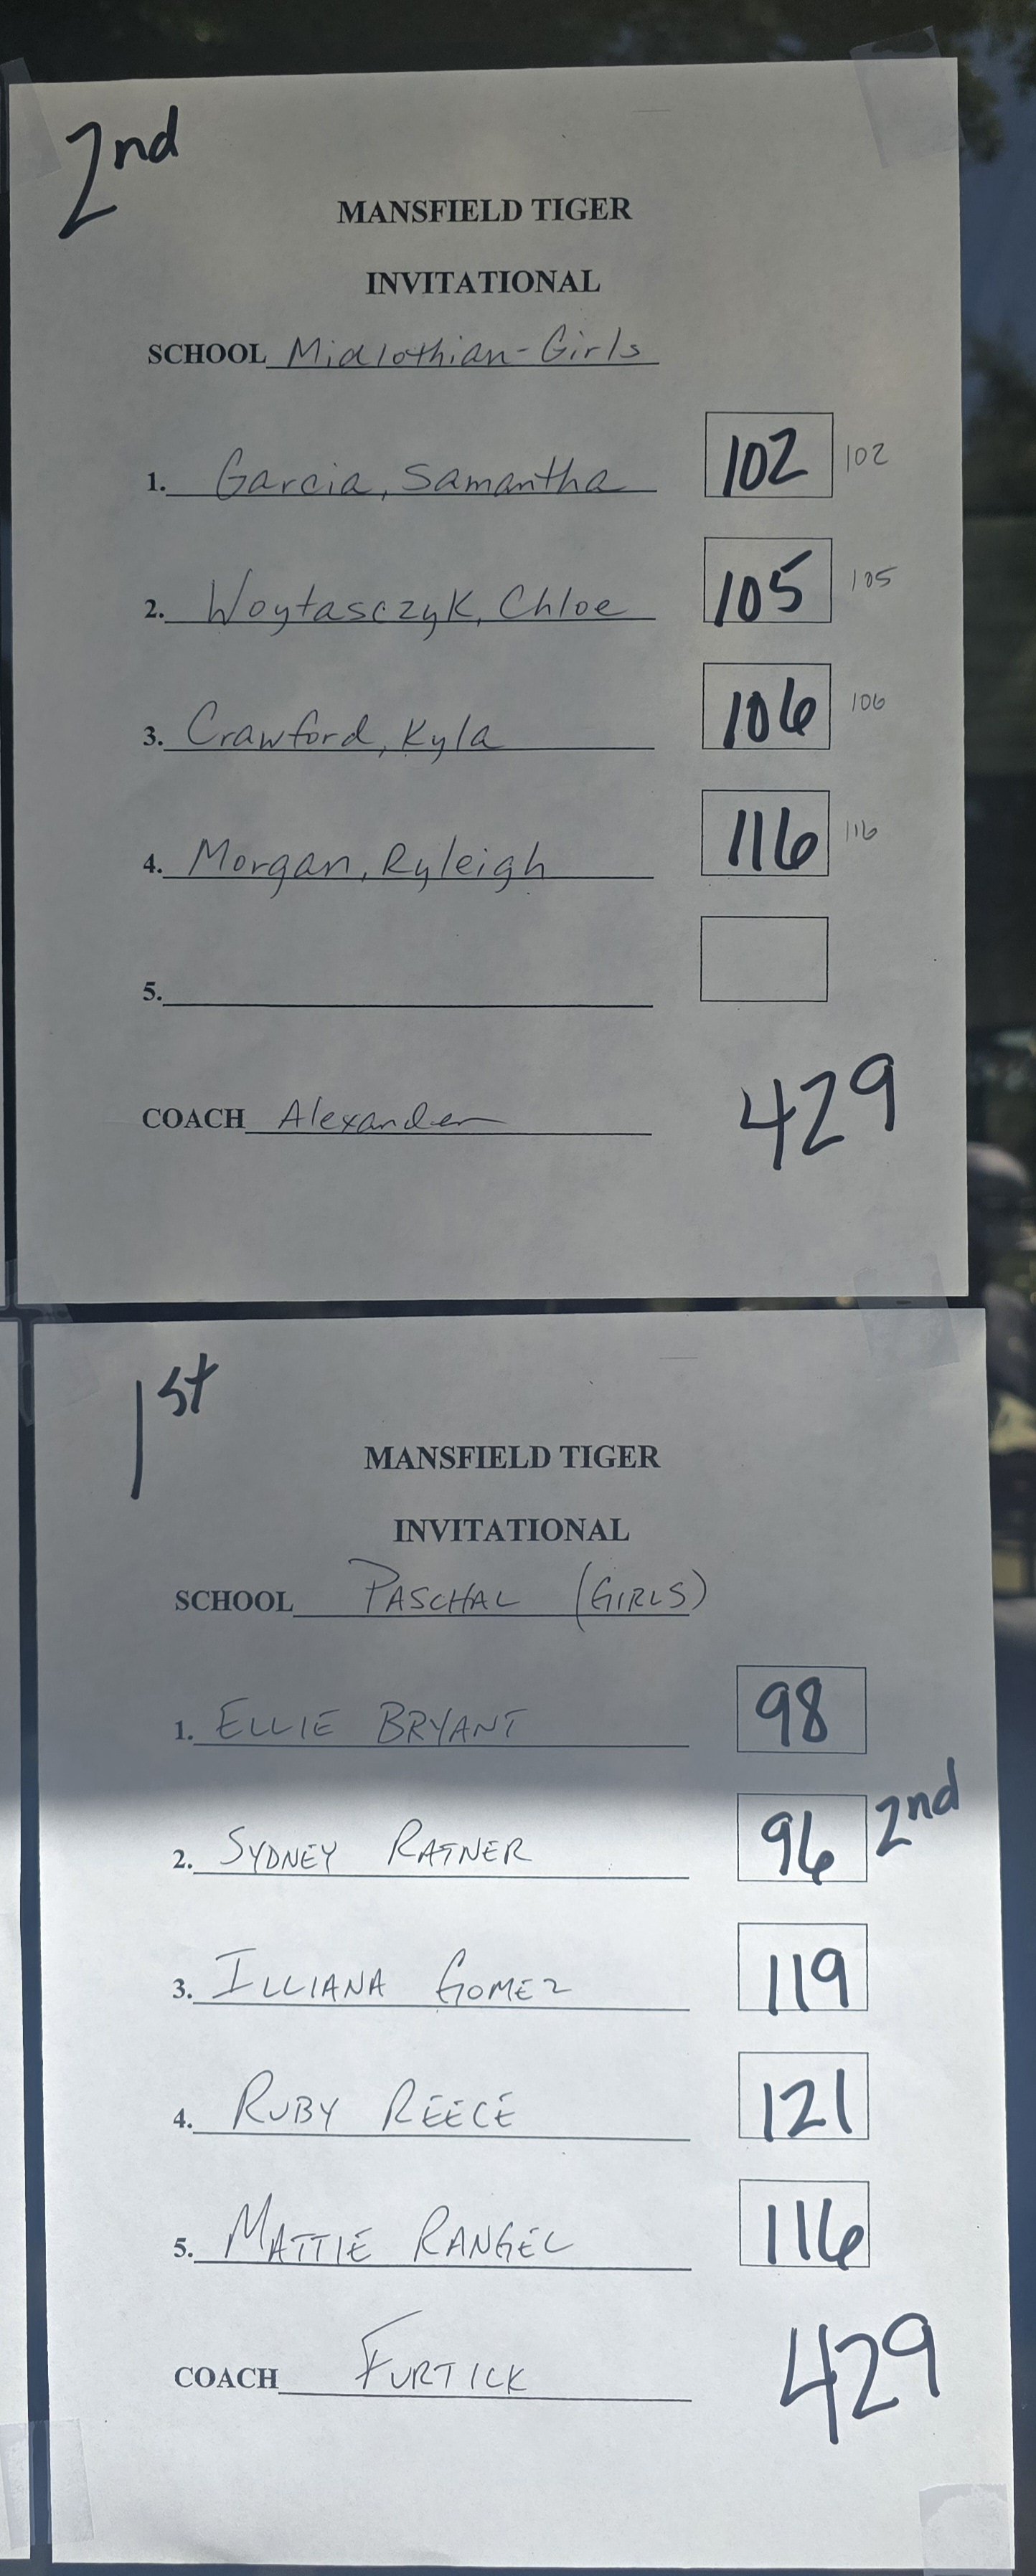 2nd
MANSFIELD TIGER
INVITATIONAL
SCHOOL Midlothian-Girls
1. Garcia, Samantha 102 102
2. Woytasczyk, Chloe 105 105
3. Crawford, Kyla 106 106
4. Morgan, Ryleigh 116 116
5.
COACH Alexander 429
1st
MANSFIELD TIGER
INVITATIONAL
SCHOOL PASCHAL (GIRLS)
1. ELLIE BRYANT 98
2. SYDNEY RATNER 96 2nd
3. ILLIANA GOMEZ 119
4. RUBY REECE 121
5. MATTIE RANGEL 116
COACH FURTICK 429